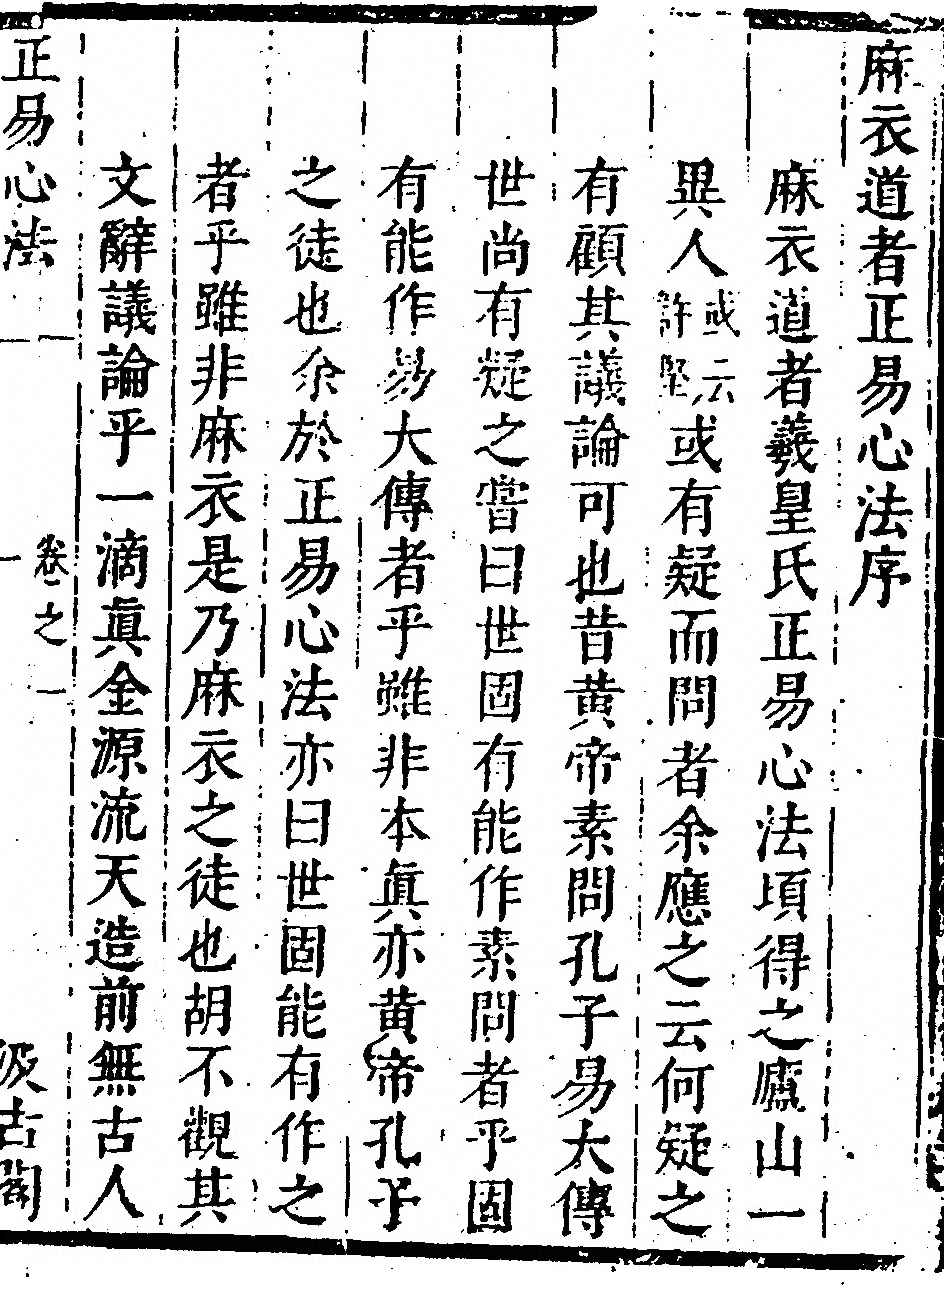 麻衣道者正易心法序
麻衣道者羲皇氏正易心法頃得之廬山一
異人或云許堅或有疑而問者余應之云何疑之
有顧其議論可也昔黄帝素問孔子易大傳
世尚有疑之嘗曰世固有能作素問者乎固
有能作易大傳者乎雖非本眞亦黄帝孔子
之徒也余於正易心法亦曰世固能有作之
者乎雖非麻衣是乃麻衣之徒也胡不觀其
文辭議論乎一滴眞金源流天造前無古人
正易心法 卷之一 一 汲古閣